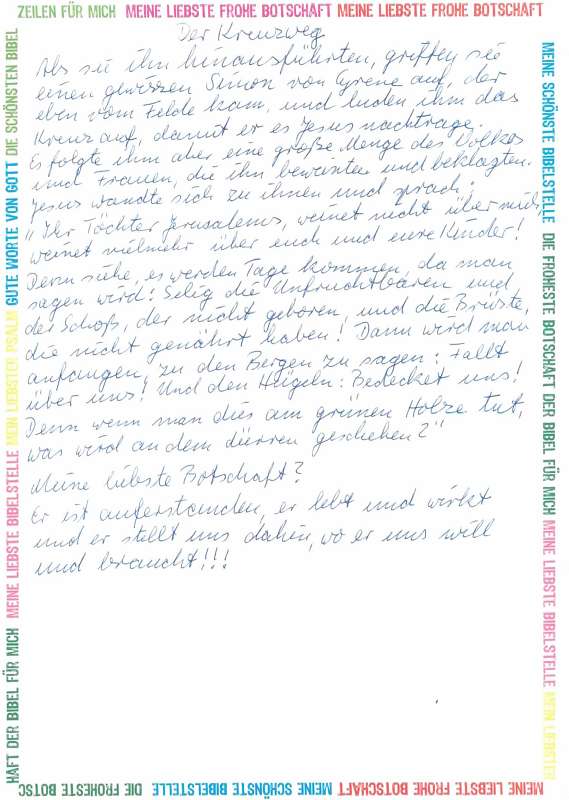 ZEILEN FÜR MICH MEINE LIEBSTE FROHE BOTSCHAFT MEINE LIEBSTE FROHE BOTSCHAFT
Der Kreuzweg
Als sie ihn hinausführten, griffen sie
einen gewissen Simon von Cyrene auf, der
eben vom Felde kam, und luden ihm das
Kreuz auf, damit er es Jesus nachtrage.
Es folgte ihm aber eine große Menge des Volkes
und Frauen, die ihn beweinten und beklagten.
Jesus wandte sich zu ihnen und sprach:
"Ihr Töchter Jerusalems, weinet nicht über mich,
weinet vielmehr über euch und eure Kinder!
Denn siehe, es werden Tage kommen, da man
sagen wird: Selig die Unfruchtbaren und
der Schoß, der nicht geboren, und die Brüste,
die nicht genährt haben! Dann wird man
anfangen, zu den Bergen zu sagen: Fallt
über uns! Und den Hügeln: Bedecket uns!
Denn wenn man dies am grünen Holze tut,
was wird an dem dürren geschehen?"
Meine liebste Botschaft?
Er ist auferstanden, er lebt und wirkt
und er stellt uns dahin, wo er uns will
und braucht!!!
MEINE SCHÖNSTE BIBELSTELLE DIE FROHESTE BOTSCHAFT DER BIBEL FÜR MICH MEINE LIEBSTE BIBELSTELLE MEIN LIEBSTER
MEINE LIEBSTE FROHE BOTSCHAFT MEINE SCHÖNSTE BIBELSTELLE DIE FROHESTE BOTSC
HAFT DER BIBEL FÜR MICH MEINE LIEBSTE BIBELSTELLE MEIN LIEBSTER PSALM GUTE WORTE VON GOTT DIE SCHÖNSTEN BIBEL